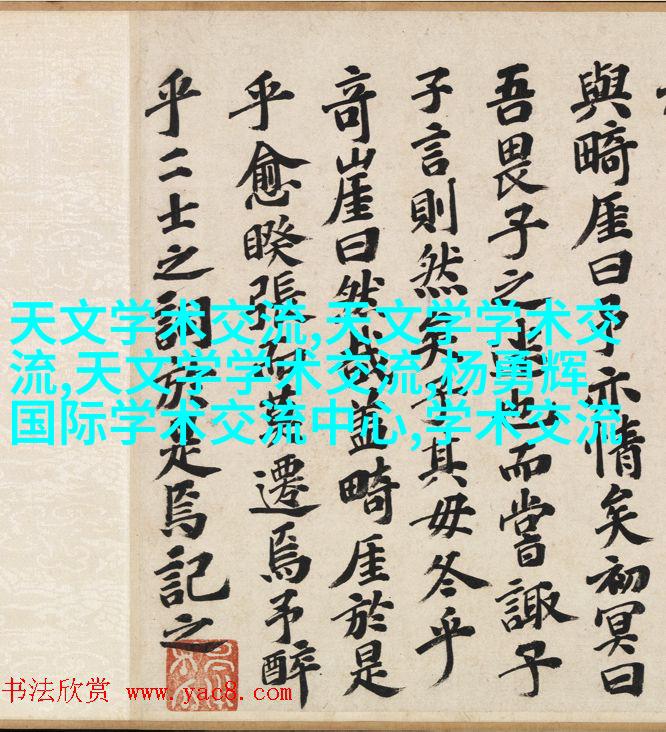 與畸厓曰予亦情矣初冥曰
吾畏子之也而嘗諏子
子言則然矣其毋冬乎
奇崖曰然哉蓋畸厓於是
乎愈睽張遷焉予醉
乎二士之詞於是焉記之
天文学术交流,天文学学术交
流,天文学学术交流,杨勇辉
国际学术交流中心,学术交流
书法欣赏 www.yac8.com